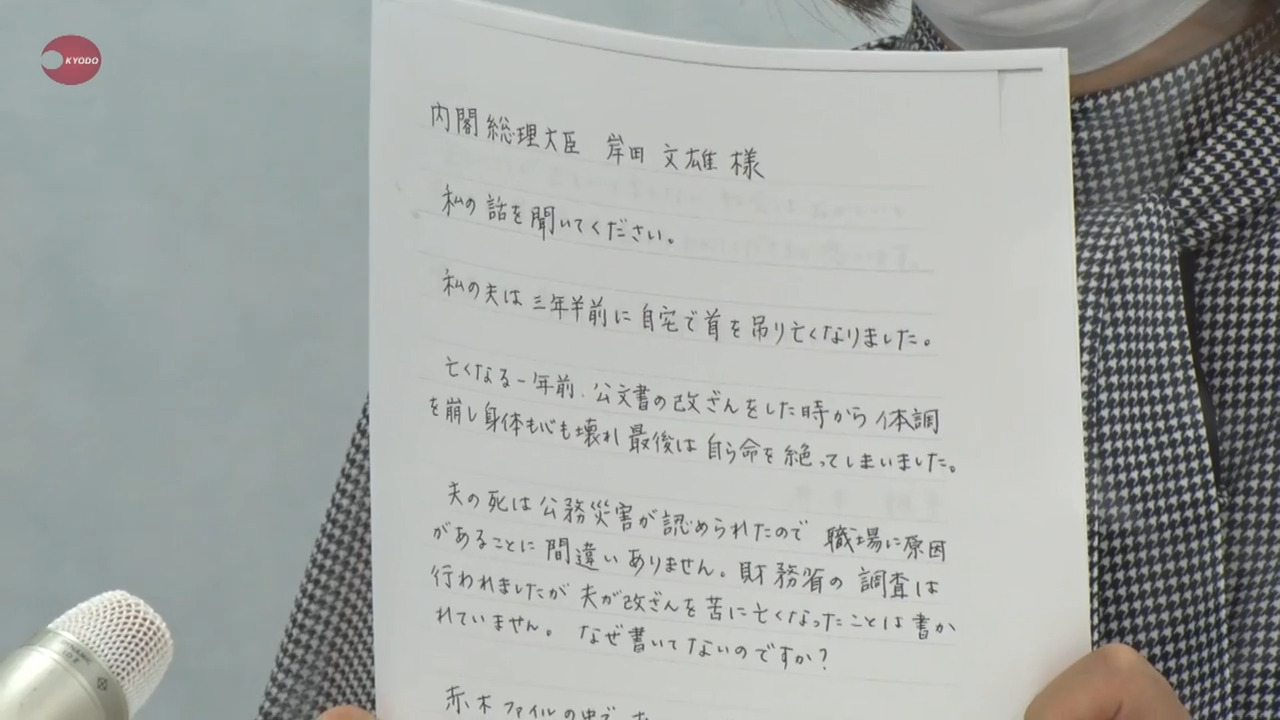 KYODO
内閣総理大臣 岸田 文雄 様
私の話を聞いてください。
私の夫は三年半前に自宅で首を吊り亡くなりました。
亡くなる一年前、公文書の改ざんをした時から体調
を崩し身体も心も壊れ最後は自ら命を絶ってしまいました。
夫の死は公務災害が認められたので 職場に原因
があることに間違いありません。財務省の調査は
行われましたが夫が改ざんを苦に亡くなったことは書か
れていません。 なぜ書いてないのですか?
赤木ファイルの中で